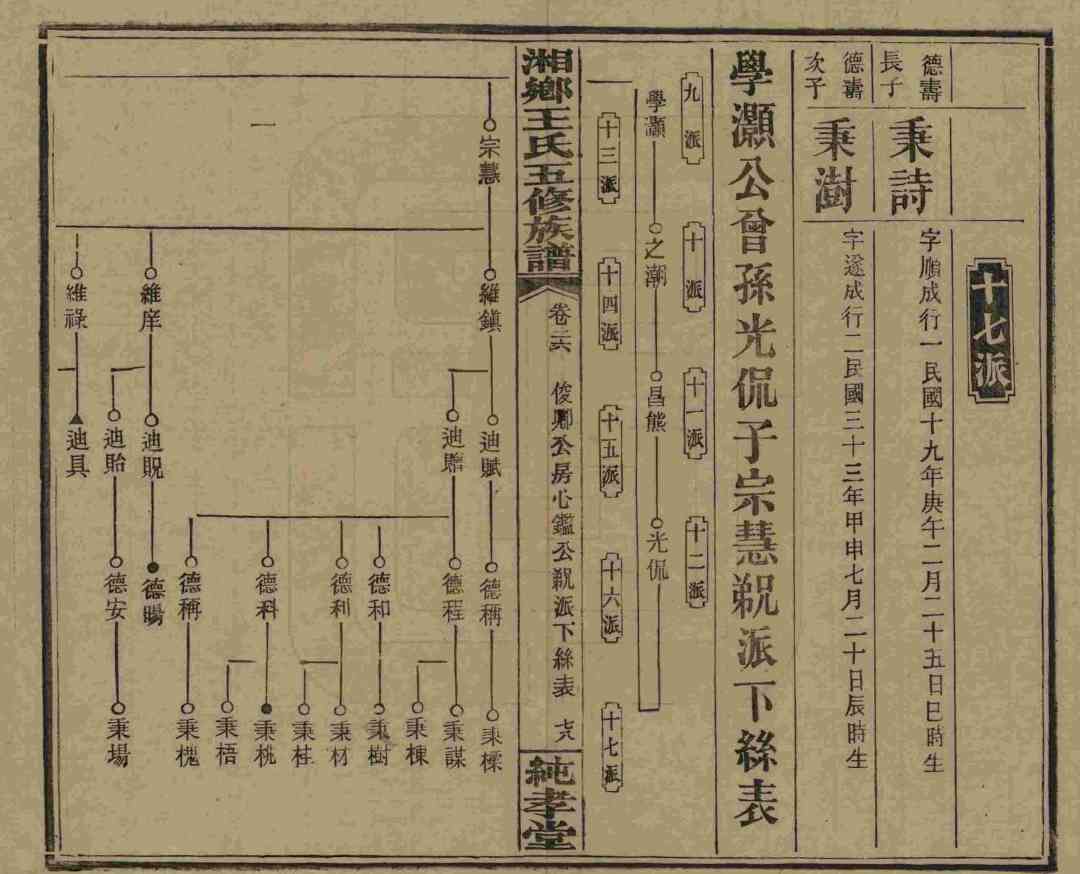 十七派
德壽長子
秉詩
字順成行一民國十九年庚午二月二十五日巳時生
德壽次子
秉澍
字遂成行二民國三十三年甲申七月二十日辰時生
學灝公曾孫光侃子宗慧派下絲表
九派
十派
十一派
十二派
學灝
之潮
昌熊
光侃
十三派
十四派
十五派
十六派
十七派
湘鄉王氏五修族譜
卷二六
俊卿公房心鑑公派下絲表
純孝堂
宗慧
維鎮
迪賦
德稱
秉樑
迪贈
德程
秉謀
秉棟
德和
秉樹
德利
秉材
秉桂
德科
秉桃
秉梧
德稱
秉槐
維庠
迪貺
德暘
迪貽
德安
秉場
維祿
迪具